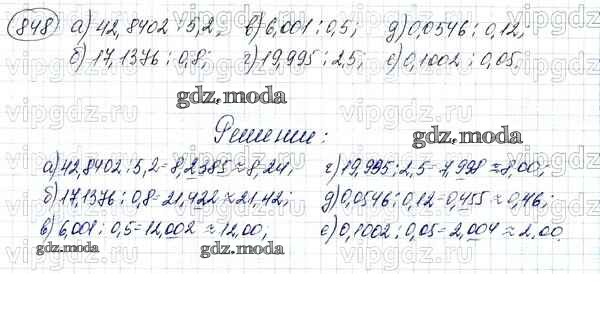 848) а) 42,8402 : 5,2; в) 6,001 : 0,5; д) 0,0546 : 0,12;
б) 17,1376 : 0,8; г) 19,995 : 2,5; е) 0,1002 : 0,05;
gdz.moda
Решение:
gdz.moda
а) 42,8402 : 5,2 = 8,2385 ≈ 8,24; г) 19,995 : 2,5 = 7,998 ≈ 8,00;
б) 17,1376 : 0,8 = 21,422 ≈ 21,42; д) 0,0546 : 0,12 = 0,455 ≈ 0,46;
в) 6,001 : 0,5 = 12,002 ≈ 12,00; е) 0,1002 : 0,05 = 2,004 ≈ 2,00.
gdz.moda gdz.moda gdz.moda
vipgdz.ru